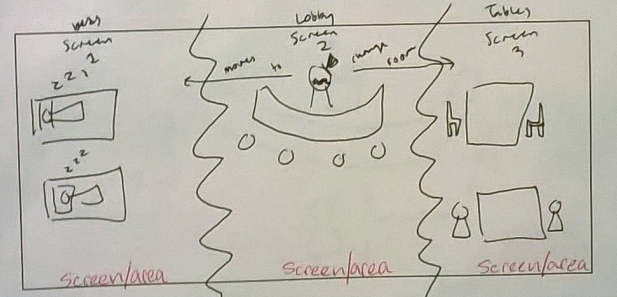 Screen
z z z
z z z
Screen/area
Lobby
Screen
2
moves to
change
room
Screen/area
Tables
Screen
3
Screen/area